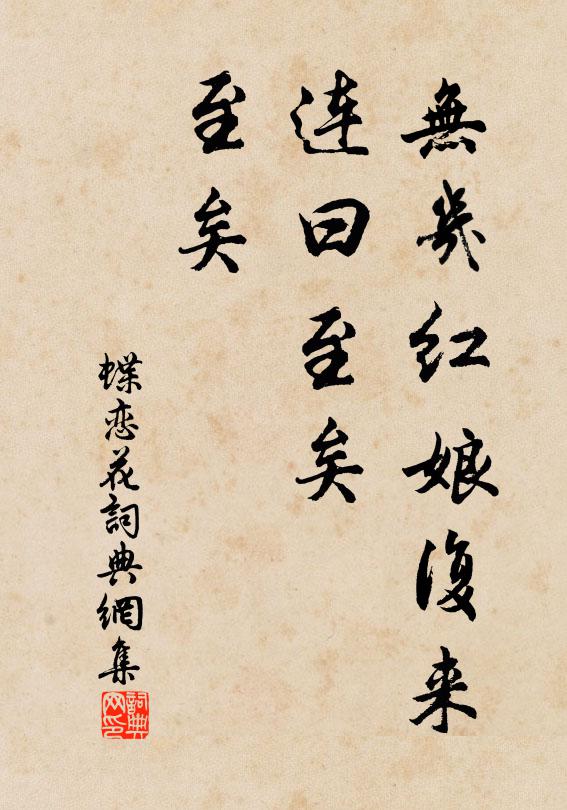 無幾红娘復来
连曰至矣
至矣
蝶恋花詞典網集
詞典
网印